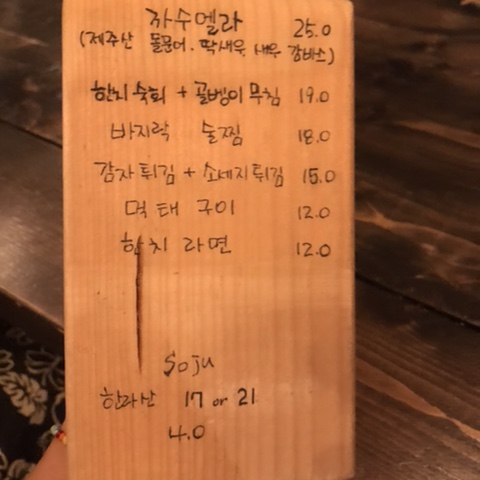 카수엘라 25.0
(제주산 돌문어, 딱새우, 새우 감바스)
한치숙회 + 골뱅이무침 19.0
바지락 술찜 18.0
감자튀김 + 소세지튀김 15.0
먹태 구이 12.0
한치 라면 12.0
Soju
한라산 17 or 21
4.0